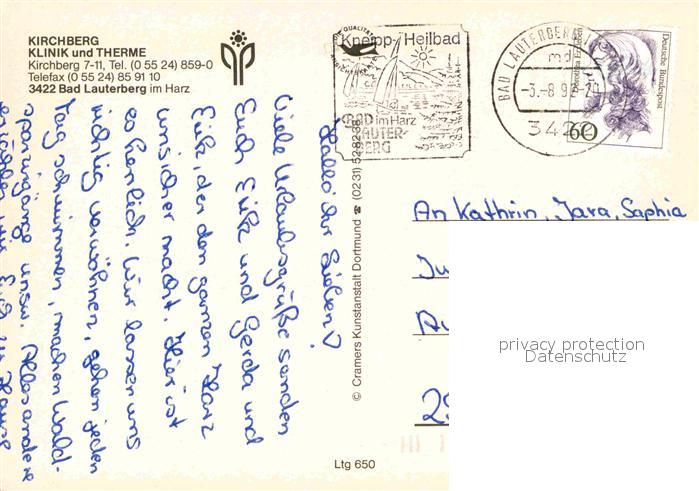 KIRCHBERG
KLINIK und THERME
Kirchberg 7-11, Tel. (0 55 24) 859-0
Telefax (0 55 24) 85 91 10
3422 Bad Lauterberg im Harz
Kneipp-Heilbad
BAD im Harz
LAUTER-
BERG
BAD LAUTERBERG
md
-3.-8.9
3422
Deutsche Bundespost
60
Hallo Ihr Lieben!
Viele Urlaubsgrüße senden
Euch Eike und Gerda und
Eike, der den ganzen Harz
unsicher macht. Hier ist
es herrlich. Wir lassen uns
richtig verwöhnen, gehen jeden
Tag schwimmen, machen Wald-
spaziergänge usw. Alles andere
wir Euch zu Hause
© Cramers Kunstanstalt Dortmund ☎ (02 31) 52 82 38
An Kathrin, Jara, Saphia
Ju
29
privacy protection
Datenschutz
Ltg 650